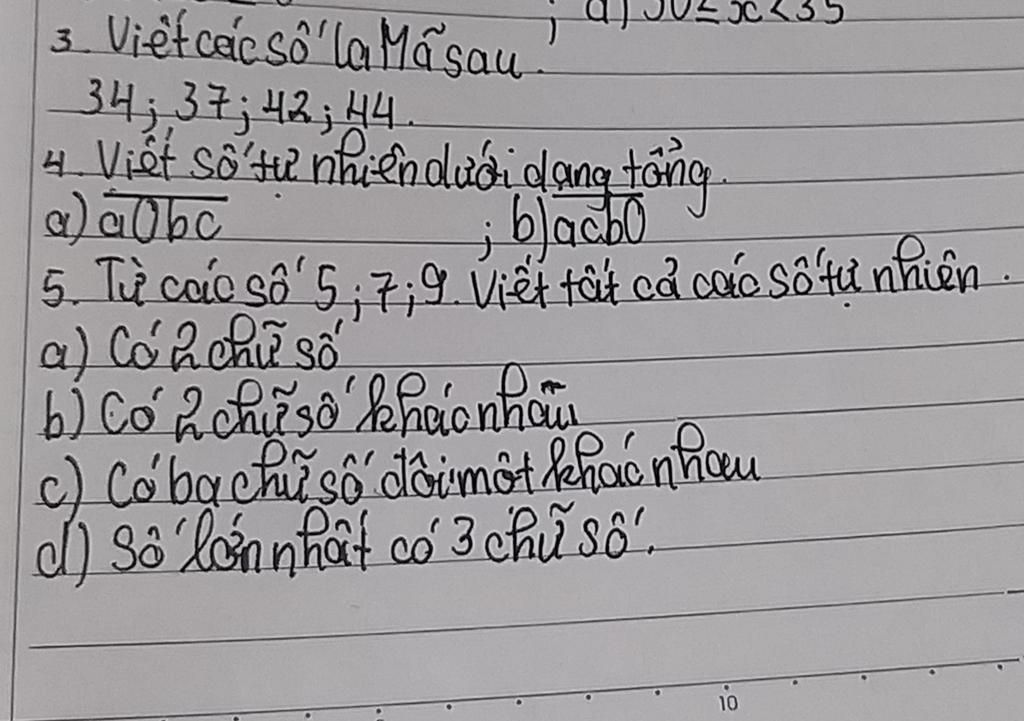 ; d) 30 ≤ x < 35
3. Viết các số la Mã sau.
34; 37; 42; 44.
4. Viết số tự nhiên dưới dạng tổng.
a) a0bc ; b) acb0
5. Từ các số 5; 7; 9. Viết tất cả các số tự nhiên.
a) Có 2 chữ số
b) Có 2 chữ số khác nhau
c) Có ba chữ số đôi một khác nhau
d) Số lớn nhất có 3 chữ số.
10